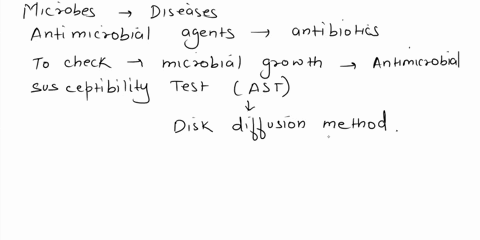 Microbes → Diseases
Antimicrobial agents → antibiotics
To check → microbial growth → Antimicrobial
susceptibility Test (AST)
↓
Disk diffusion method.